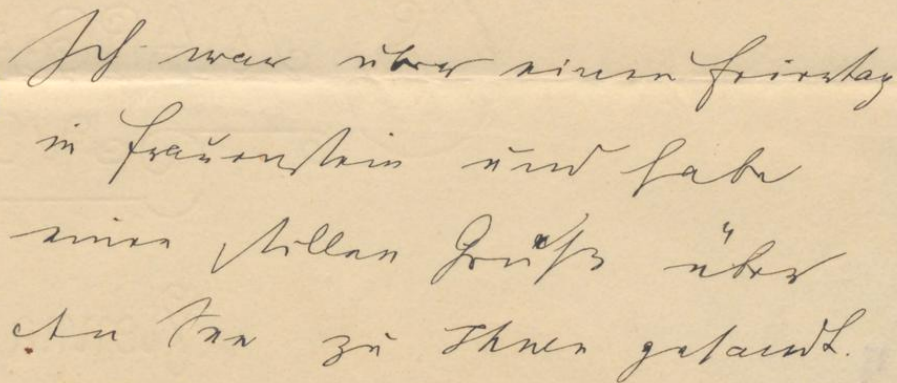 Ich war über einen Feiertag
in Frauenstein und habe
einen stillen Gruß über
den See zu Ihnen gesandt.